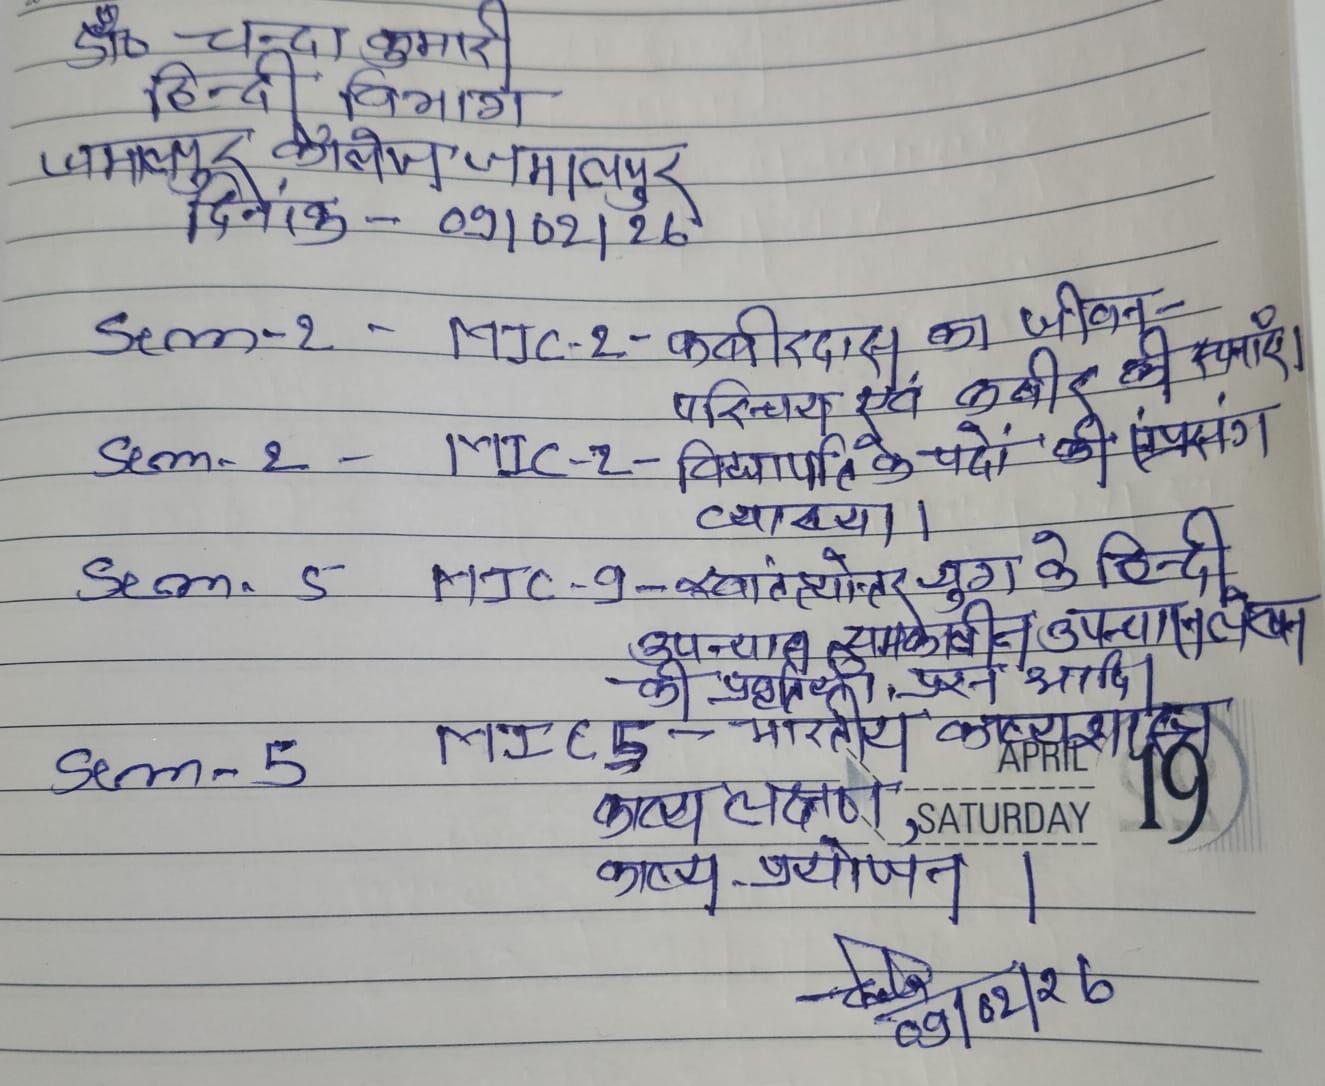 डॉ० चन्दा कुमारी
हिन्दी विभाग
जमालपुर कॉलेज जमालपुर
दिनांक - 09/02/26
Sem-2 - MJC-2 - कबीरदास का जीवन-
परिचय एवं कबीर की रचनाएँ।
Sem-2 - MIC-2 - विद्यापति के पदों की सप्रसंग
व्याख्या।
Sem. 5 MJC-9 - स्वातंत्र्योत्तर युग के हिन्दी
उपन्यास समकालीन उपन्यास लेखन
की प्रश्न आदि।
Sem-5 MIC 5 - भारतीय काव्यशास्त्र
काव्य लक्षण,
काव्य-प्रयोजन।
APRIL 19
SATURDAY
09/02/26